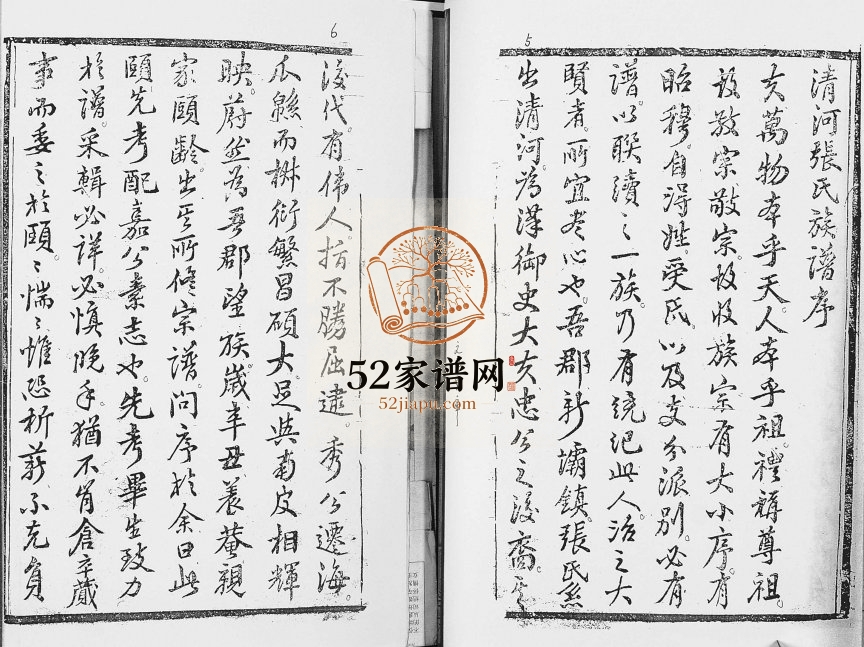 5
清河張氏族譜序
夫萬物本乎天。人本乎祖。禮稱尊祖。
故敬宗敬宗。故收族宗有大小序。有
昭穆。自得姓。受氏。以及支分派別。必有
譜以聯續之一族乃有統紀此人治之大
賢者。所宜尽心也。吾郡新壩鎮。張氏系
出清河。為漢御史大夫忠公之後裔。
6
後代。有偉人。指不勝屈逮。秀公遷海。
瓜緜而椒衍繁昌碩大足與南皮相輝
映。蔚然為吾郡望族歲辛丑養菴親
家頤齡。出其所修宗譜。問序於余曰此
頤先考配嘉公素志也。先考畢生致力
於譜。采輯必詳。必慎晚年。猶不肯倉卒蕆
事而委之於頤々惴々惟恐析薪不克負
52家谱网
52jiapu.com